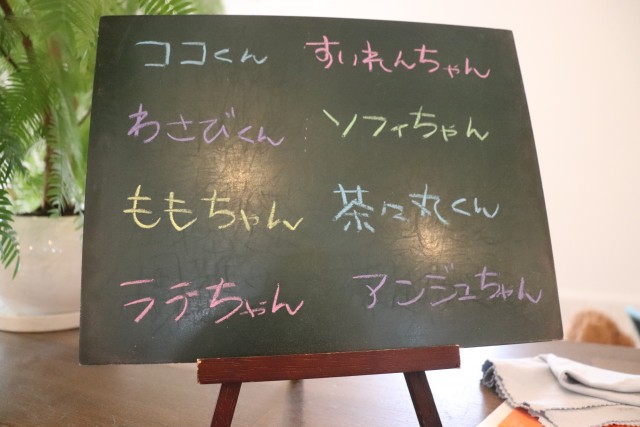 ココくん すいれんちゃん
わさびくん ソフィちゃん
ももちゃん 茶々丸くん
ラテちゃん アンジュちゃん